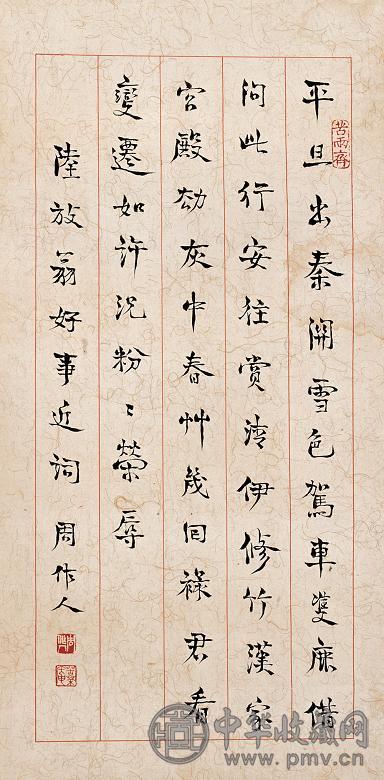 苦雨齋
平旦出秦關雪色駕車雙鹿借
問此行安往賞清伊修竹漢家
宮殿劫灰中春艸幾回綠君看
變遷如許況紛〻榮辱
陸放翁好事近詞 周作人
中华收藏网
www.pmv.cn